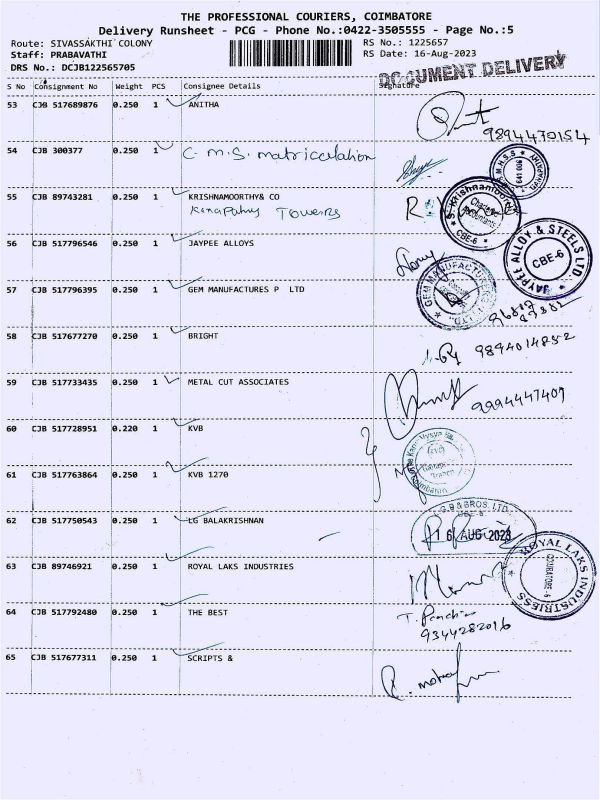 THE PROFESSIONAL COURIERS, COIMBATORE
Delivery Runsheet - PCG - Phone No.:0422-3505555 - Page No.:5
Route: SIVASSAKTHI COLONY
RS No.: 1225657
Staff: PRABAVATHI
RS Date: 16-Aug-2023
DRS No.: DCJB122565705
DOCUMENT DELIVERY
S No Consignment No Weight PCS Consignee Details Signature
53 CJB 517689876 0.250 1 ANITHA
9894470154
54 CJB 300377 0.250 1 C.M.S. matriculation
55 CJB 89743281 0.250 1 KRISHNAMOORTHY& CO
Towers
Chartered
CBE-6
56 CJB 517796546 0.250 1 JAYPEE ALLOYS
JAYPEE ALLOY & STEELS LTD.
CBE-6
57 CJB 517796395 0.250 1 GEM MANUFACTURES P LTD
GEM MANUFACTURES
58 CJB 517677270 0.250 1 BRIGHT
9894014852
59 CJB 517733435 0.250 1 METAL CUT ASSOCIATES
9994447409
60 CJB 517728951 0.220 1 KVB
61 CJB 517763864 0.250 1 KVB 1270
62 CJB 517750543 0.250 1 LG BALAKRISHNAN
& BROS. LTD.
16 AUG 2023
63 CJB 89746921 0.250 1 ROYAL LAKS INDUSTRIES
ROYAL LAKS INDUSTRIESS
COIMBATORE-6
64 CJB 517792480 0.250 1 THE BEST
9344282016
65 CJB 517677311 0.250 1 SCRIPTS &